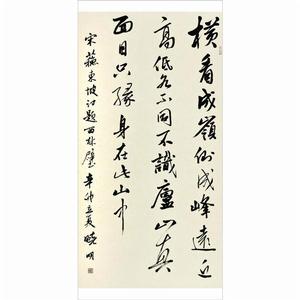 橫看成嶺側成峰遠近
高低各不同不識廬山真
面目只緣身在此山中
宋蘇東坡詩題西林壁辛卯立夏曉明